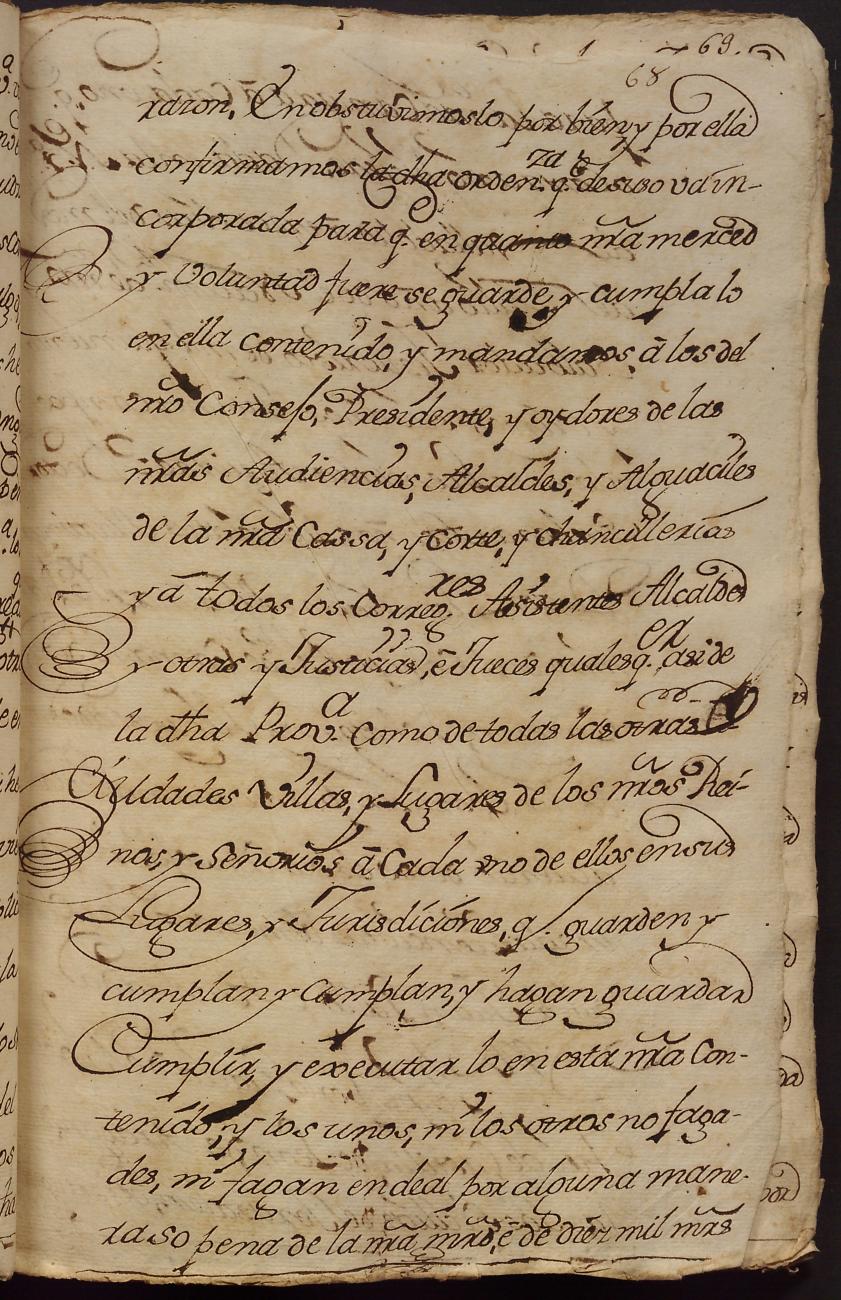 69.
68
razon. En obstuvimoslo por bien, y por ella
confirmamos la dha orden.za q.e de suso va in-
corporada para q. en quanto nr̃a merced
y Voluntad fuere se guarde, y cumpla lo
en ella contenido, y mandamos, ā los del
nr̃o Consejo, Presidente, y oydores de las
nr̃as Audiencias, Alcaldes, y Alguaciles
de la nr̃a Cassa, y Corte, y chancillerias
y ā todos los Correg.res Asistentes Alcaldes
y otras y Justicias, ē Jueces qualesq.er asi de
la dha Prov.a como de todas las otras
Ciudades Villas, y Lugares de los nr̃os Rei-
nos, y Señorios, ā Cada uno de ellos en sus
Lugares, y Jurisdiciónes, q. guarden y
cumplan y Cumplan, y hagan guardar
Cumplir, y executar lo en esta nr̃a Con-
tenido, y los unos, ni los otros no faga-
des, ni fagan endeal por alguna mane-
ra so pena de la nr̃a mr̃d, ē de diez mil mr̃s